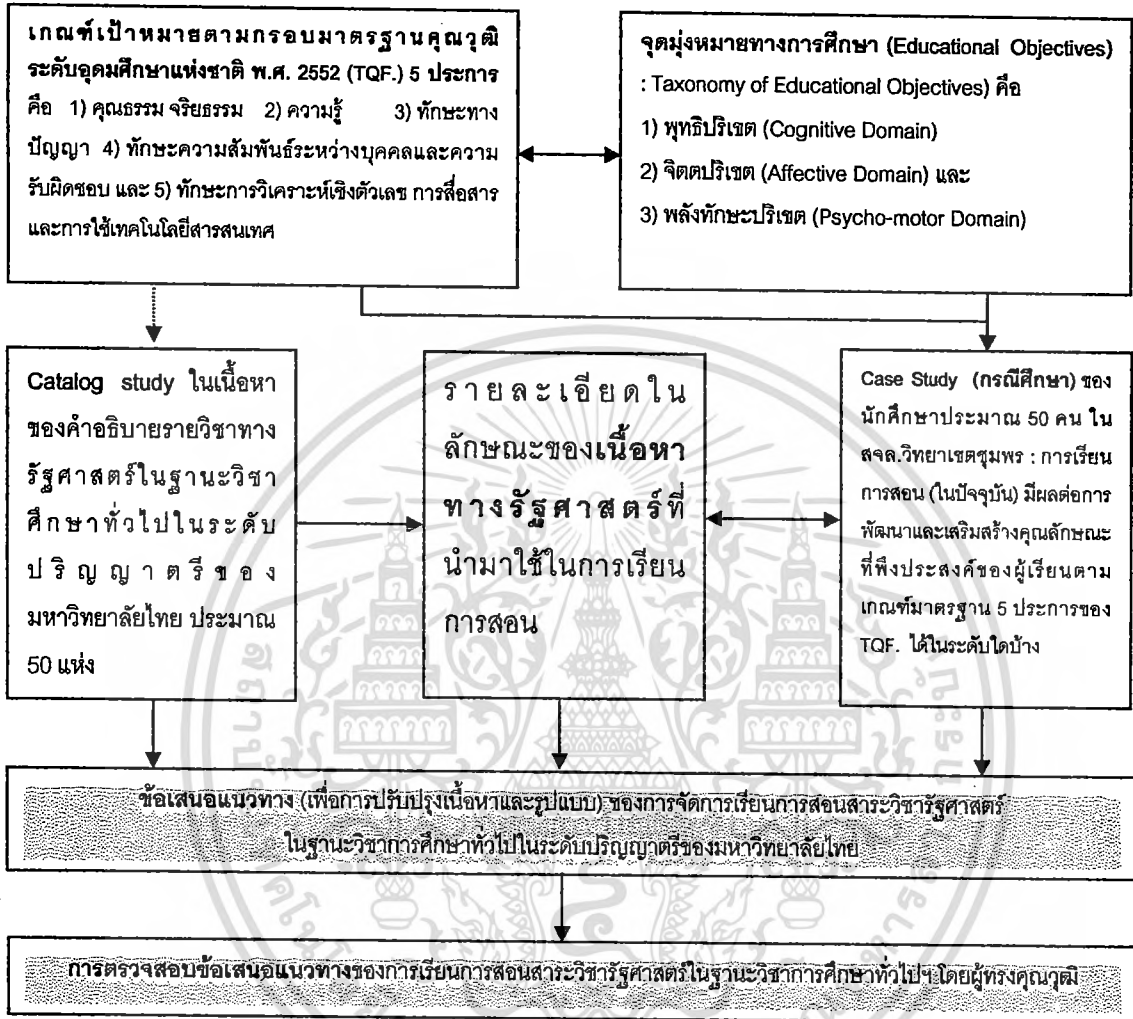 เกณฑ์เป้าหมายตามกรอบมาตรฐานคุณวุฒิ
ระดับอุดมศึกษาแห่งชาติ พ.ศ. 2552 (TQF.) 5 ประการ
คือ 1) คุณธรรม จริยธรรม 2) ความรู้ 3) ทักษะทาง
ปัญญา 4) ทักษะความสัมพันธ์ระหว่างบุคคลและความ
รับผิดชอบ และ 5) ทักษะการวิเคราะห์เชิงตัวเลข การสื่อสาร
และการใช้เทคโนโลยีสารสนเทศ
จุดมุ่งหมายทางการศึกษา (Educational Objectives)
: Taxonomy of Educational Objectives) คือ
1) พุทธิปริเขต (Cognitive Domain)
2) จิตตปริเขต (Affective Domain) และ
3) พลังทักษะปริเขต (Psycho-motor Domain)
Catalog study ในเนื้อหา
ของคำอธิบายรายวิชาทาง
รัฐศาสตร์ในฐานะวิชา
ศึกษาทั่วไปในระดับ
ปริญญาตรีของ
มหาวิทยาลัยไทย ประมาณ
50 แห่ง
รายละเอียดใน
ลักษณะของเนื้อหา
ทางรัฐศาสตร์ที่
นำมาใช้ในการเรียน
การสอน
Case Study (กรณีศึกษา) ของ
นักศึกษาประมาณ 50 คน ใน
สจล.วิทยาเขตชุมพร : การเรียน
การสอน (ในปัจจุบัน) มีผลต่อการ
พัฒนาและเสริมสร้างคุณลักษณะ
ที่พึงประสงค์ของผู้เรียนตาม
เกณฑ์มาตรฐาน 5 ประการของ
TQF. ได้ในระดับใดบ้าง
ข้อเสนอแนวทาง (เพื่อการปรับปรุงเนื้อหาและรูปแบบ) ของการจัดการเรียนการสอนสาระวิชารัฐศาสตร์
ในฐานะวิชาการศึกษาทั่วไปในระดับปริญญาตรีของมหาวิทยาลัยไทย
การตรวจสอบข้อเสนอแนวทางของการเรียนการสอนสาระวิชารัฐศาสตร์ในฐานะวิชาการศึกษาทั่วไปฯ โดยผู้ทรงคุณวุฒิ